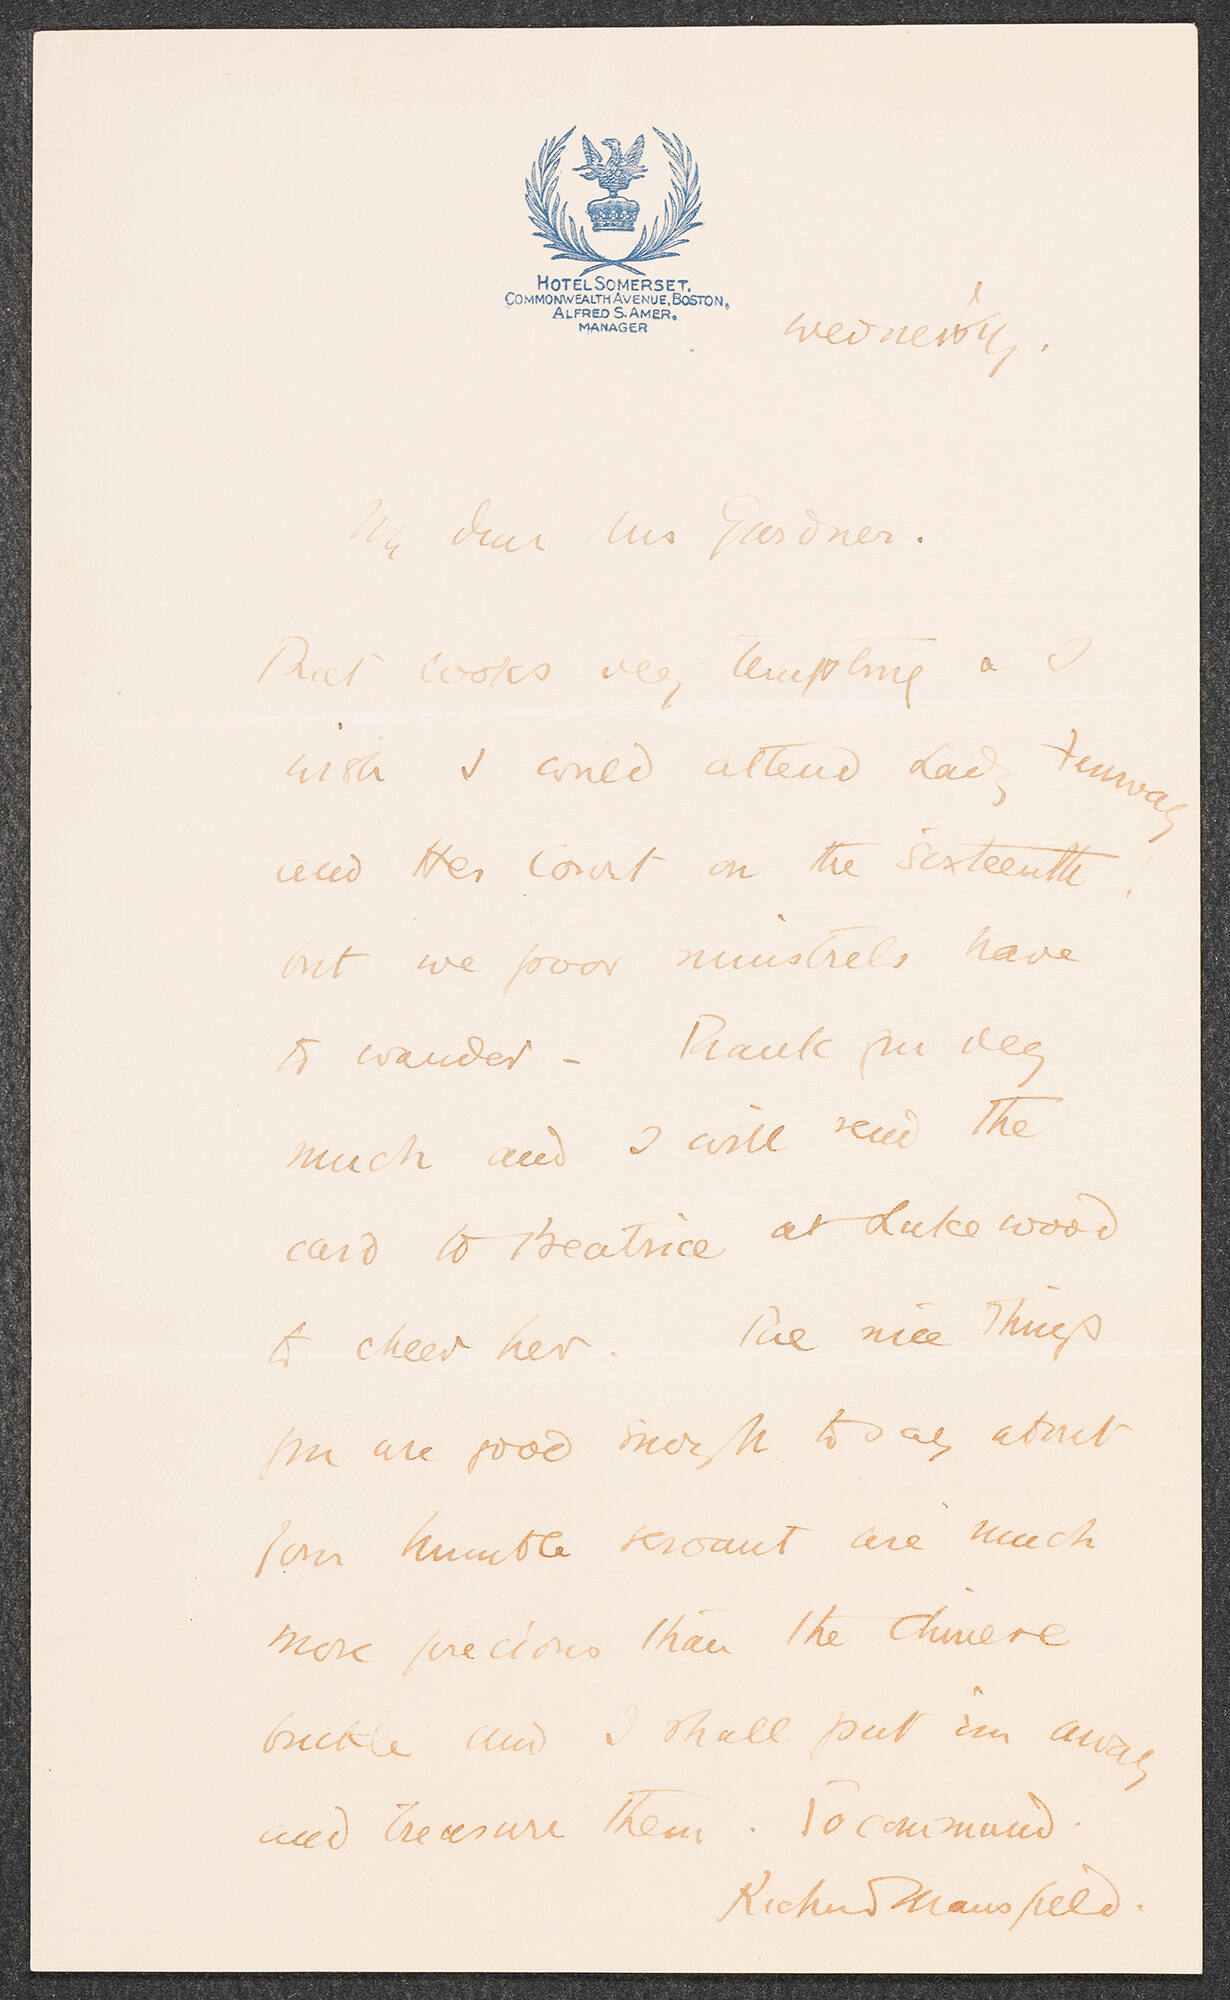 HOTEL SOMERSET,
COMMONWEALTH AVENUE, BOSTON,
ALFRED S. AMER.
MANAGER
Wednesday.
My dear Mrs Gardner.
That looks very tempting & I
wish I could attend Lady Fenway
and Her Court on the sixteenth!
but we poor minstrels have
to wander - Thank you very
much and I will send the
card to Beatrice at Lakewood
to cheer her. The nice things
you are good enough to say about
your humble servant are much
more precious than the Chinese
buckle and I shall put 'em away
and treasure them. To command.
Richard Mansfield.